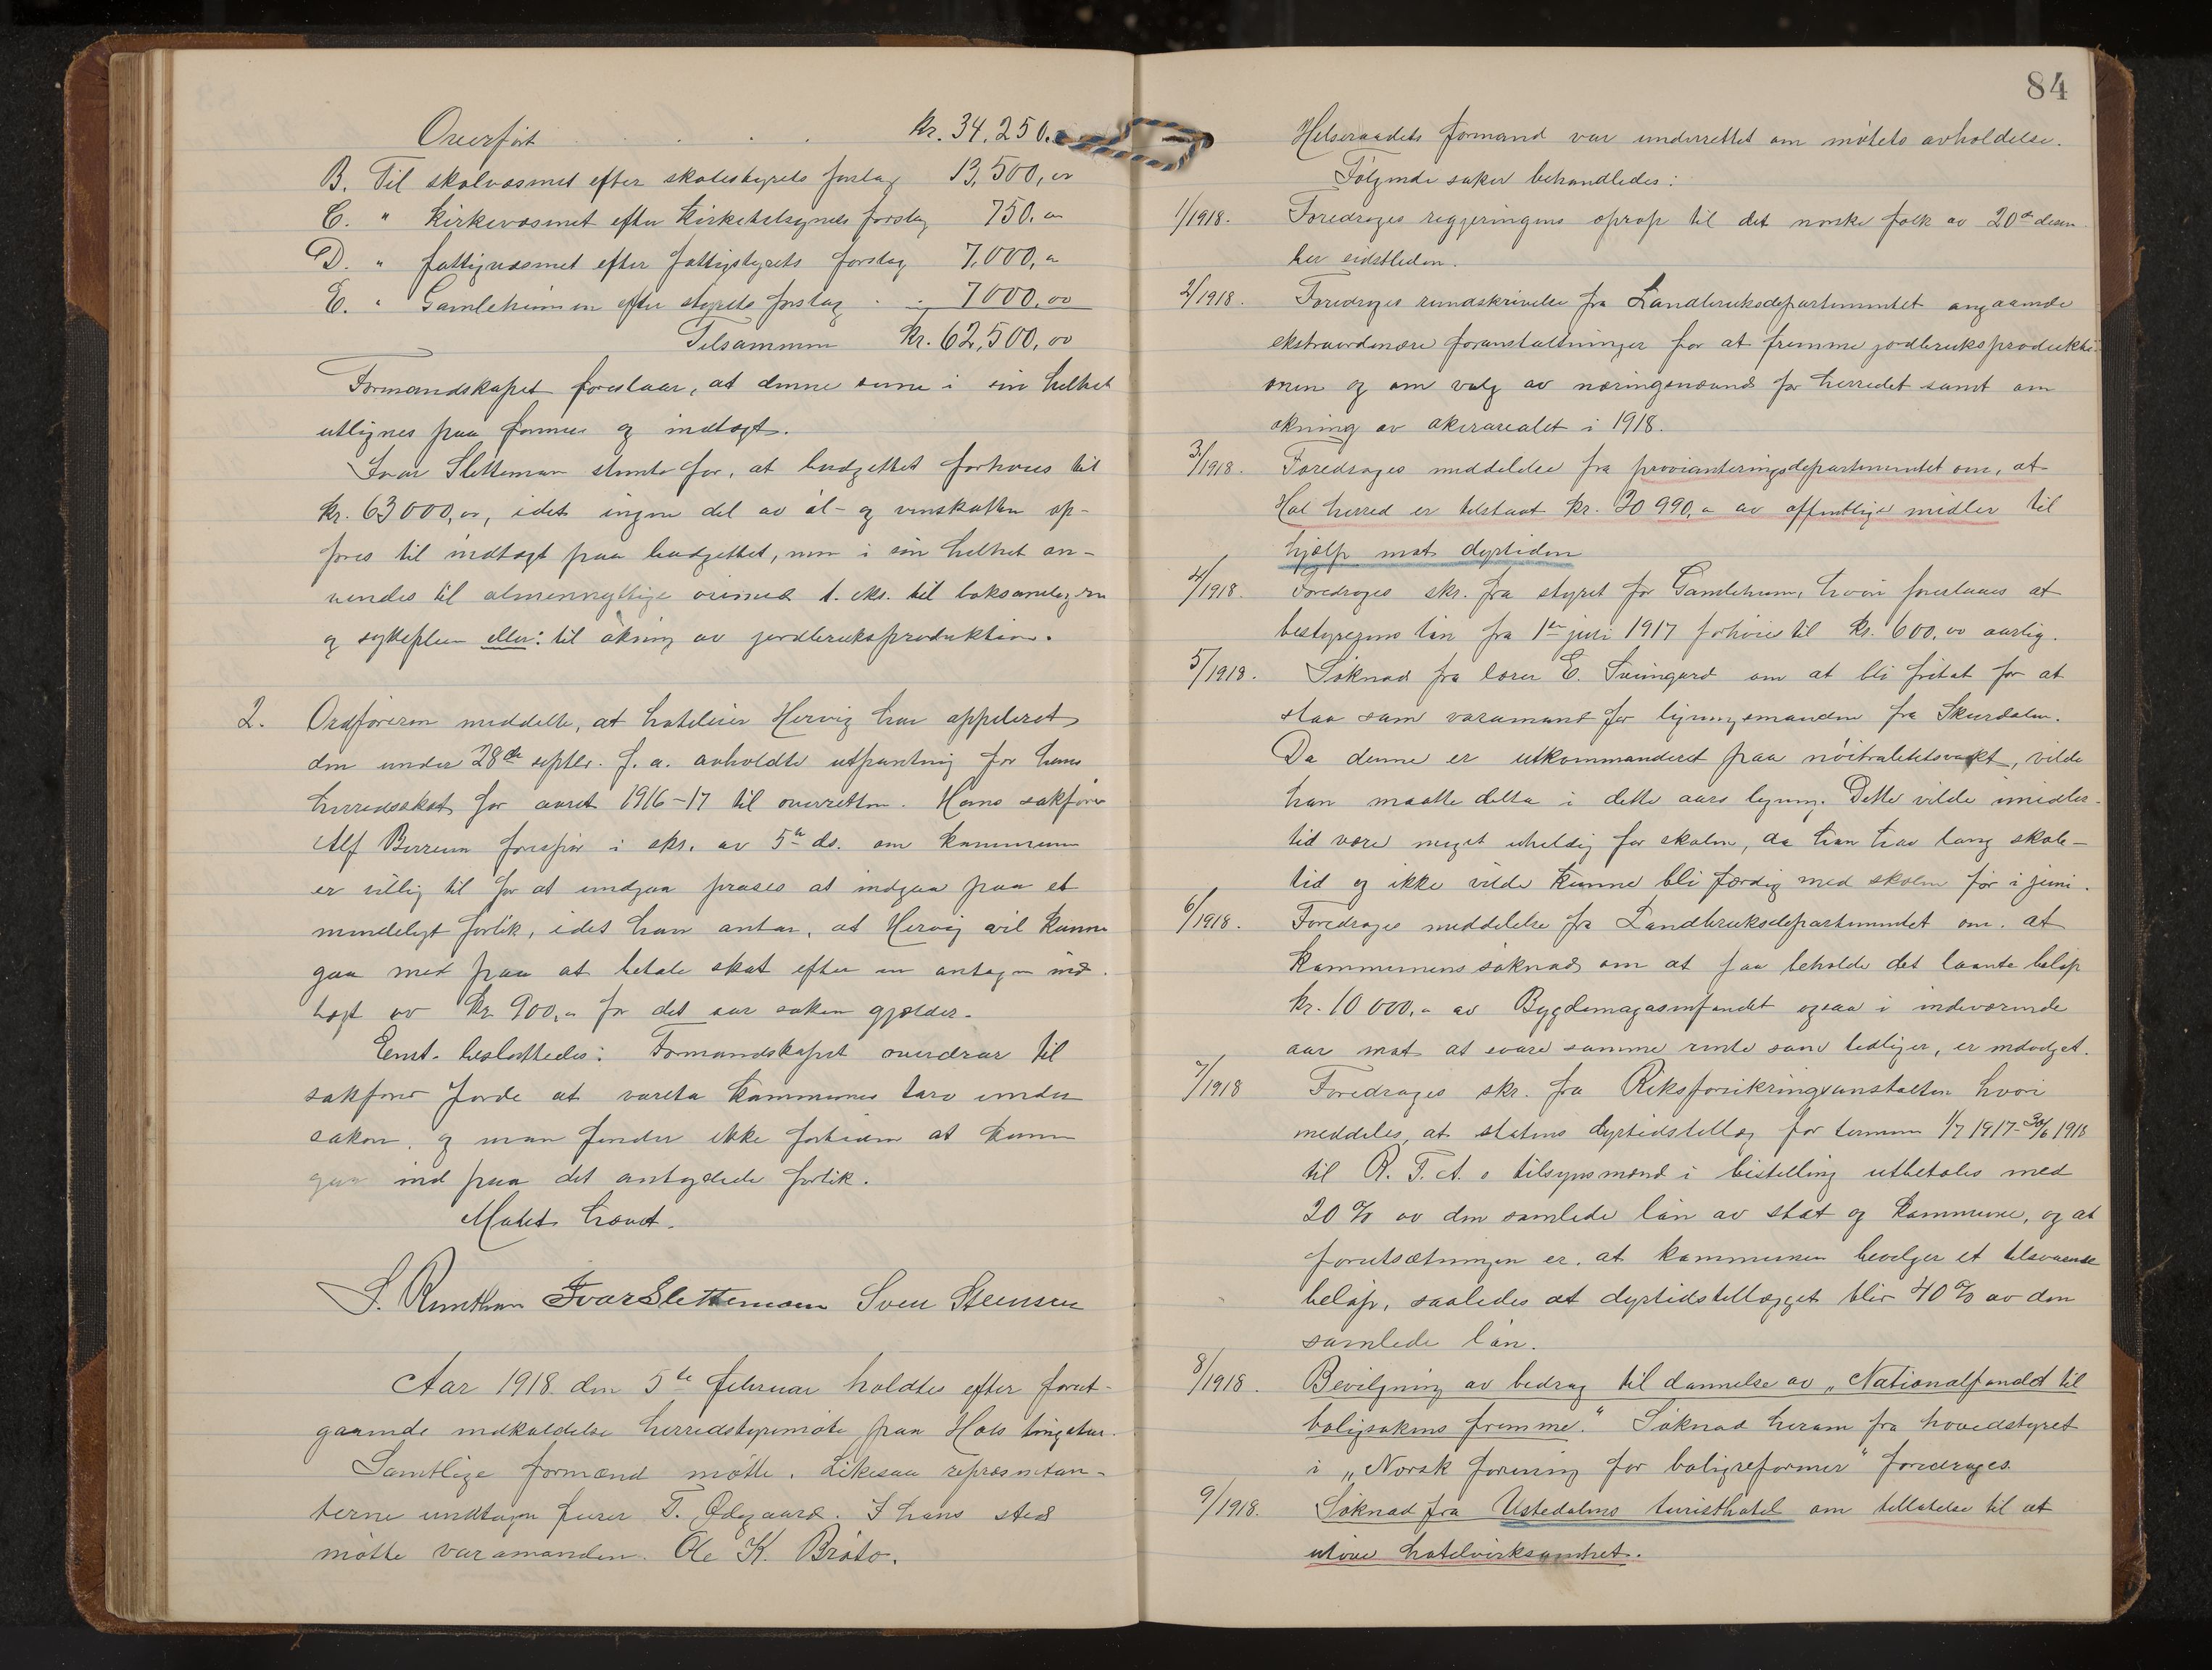 Overført . . . kr. 34,250,
B. Til skolvæsenet efter skolestyrets forslag 13,500,00
C. " kirkevæsenet efter kirketilsynets forslag 750,00
D. " fattigvæsenet efter fattigstyrets forslag 7,000,00
E. " Gamlehimen efter styrets forslag . . 7000,00
Tilsammen kr. 62,500,00
Formandskapet foreslaar, at denne sum i sin helhet
utlignes paa formue og indtægt.
Ivar Slettemoen stemte for, at budgettet forhøies til
kr. 63000,00, idet ingen del av øl- og vinskatten op-
føres til indtægt paa budgettet, men i sin helhet an-
vendes til almennyttige øiemed t. eks. til boksamlingen
og sykepleien eller: til økning av jordbruksproduktion.
2. Ordføreren meddelte, at hoteleier Hervig har appeleret
den under 28de septbr. f. a. avholdte utpantning for hans
herredsskat for aaret 1916-17 til overretten. Hans sakfører
Alf Berrum forespør i skr. av 5te ds. om kommunen
er villig til for at undgaa proses at indgaa paa et
mindeligt forlik, idet han antar, at Hervig vil kunne
gaa med paa at betale skat efter en antagen ind-
tægt av kr 900,00 for det aar saken gjælder.
Enst. besluttedes: Formandskapet overdrar til
sakfører Jorde at vareta kommunens tarv under
saken, og man finder ikke forhidem at kunne
gaa ind paa det antydede forlik.
Møtet hævet.
S. Rumthun Ivar Slettemoen Sven Steensen
Aar 1918 den 5te februar holdtes efter forut-
gaaende indkaldelse herredstyremøte paa Hols tingstue.
Samtlige formænd møtte. Likesaa repræsentan-
terne undtagen furer T. Ødegaard. I hans sted
møtte varamanden Ole K. Bråto.
84
Helseraadets formand var underrettet om møtets avholdelse.
Følgende saker behandledes:
1/1918. Foredroges regjeringens oprop til det norske folk av 20de desem-
ber sidstleden.
2/1918. Foredroges rundskrivelse fra Landbruksdepartementet angaaende
ekstraordinære foranstaltninger for at fremme jordbruksprodukti-
onen og om valg av næringsnævnd for herredet samt om
økning av akerarealet i 1918.
3/1918. Foredroges meddelelse fra provianteringsdepartementet om, at
Hol herred er tilstaat kr. 20 990,00 av offentlige midler til
hjælp mot dyrtiden
4/1918. Foredroges skr. fra styret for Gamlehimen, hvori foreslaaes at
bestyrerens løn fra 1ste juli 1917 forhøies til kr. 600,00 aarlig.
5/1918. Søknad fra lærer E. Sveingard om at bli fritat for at
staa som varamand for ligningsmanden fra Skurdalen.
Da denne er utkommanderet paa nøitralitetsvakt, vilde
han maatte delta i dette aars ligning. Dette vilde imidler-
tid være meget uheldig for skolen, da han har lang skole-
tid og ikke vilde kunne bli færdig med skolen før i juni.
6/1918. Foredroges meddelelse fra Landbruksdepartementet om, at
kommunens søknad om at faa beholde det laante beløp
kr. 10 000,00 av Bygdemagasinfondet ogsaa i indeværende
aar mot at svare samme rente som tidligere, er indvilget.
7/1918 Foredroges skr. fra Riksforsikringsanstalten hvori
meddeles, at statens dyrtidstillæg for termin 1/7 1917-30/6 1918
til R. F. A. s tilsynsmænd i bistilling utbetales med
20 % av den samlede løn av stat og kommune, og at
forutsætningen er, at kommunen bevilger et tilsvarende
beløp, saaledes at dyrtidstillægget blir 40 % av den
samlede løn.
8/1918. Bevilgning av bedrag til dannelse av „Nationalfondet til
boligsakens fremme." Søknad herom fra hovedstyret
i „Norsk forening for boligreformer" foredroges.
9/1918. Søknad fra Ustedalens turisthotel om tillatelse til at
utøve hotelvirksomhet.